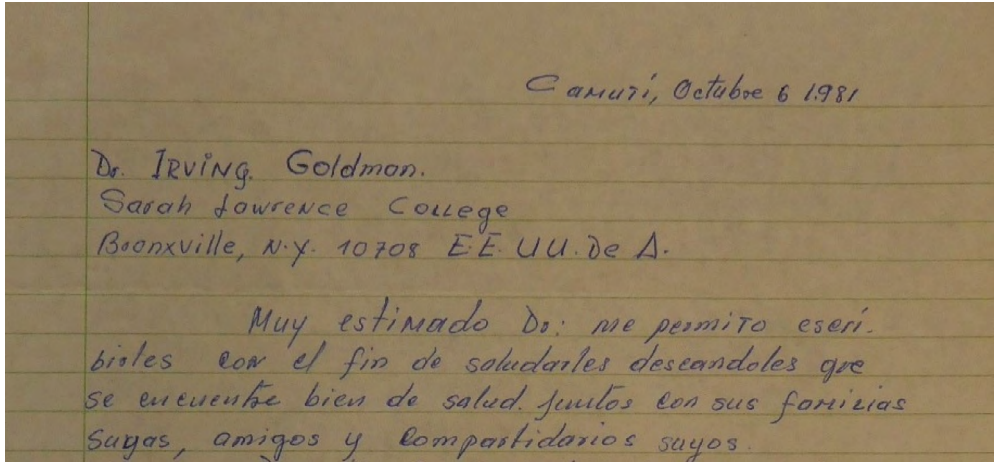 Camutí, Octubre 6 1.981
Dr. IRVING. Goldman.
Sarah Lawrence College
Bronxville, N.Y. 10708 E.E. UU. De A.
Muy estimado Dr: me permito escri-
birles con el fin de saludarles deseandoles que
se encuentre bien de salud. Juntos con sus familias
Suyas, amigos y Compartidarios suyos.